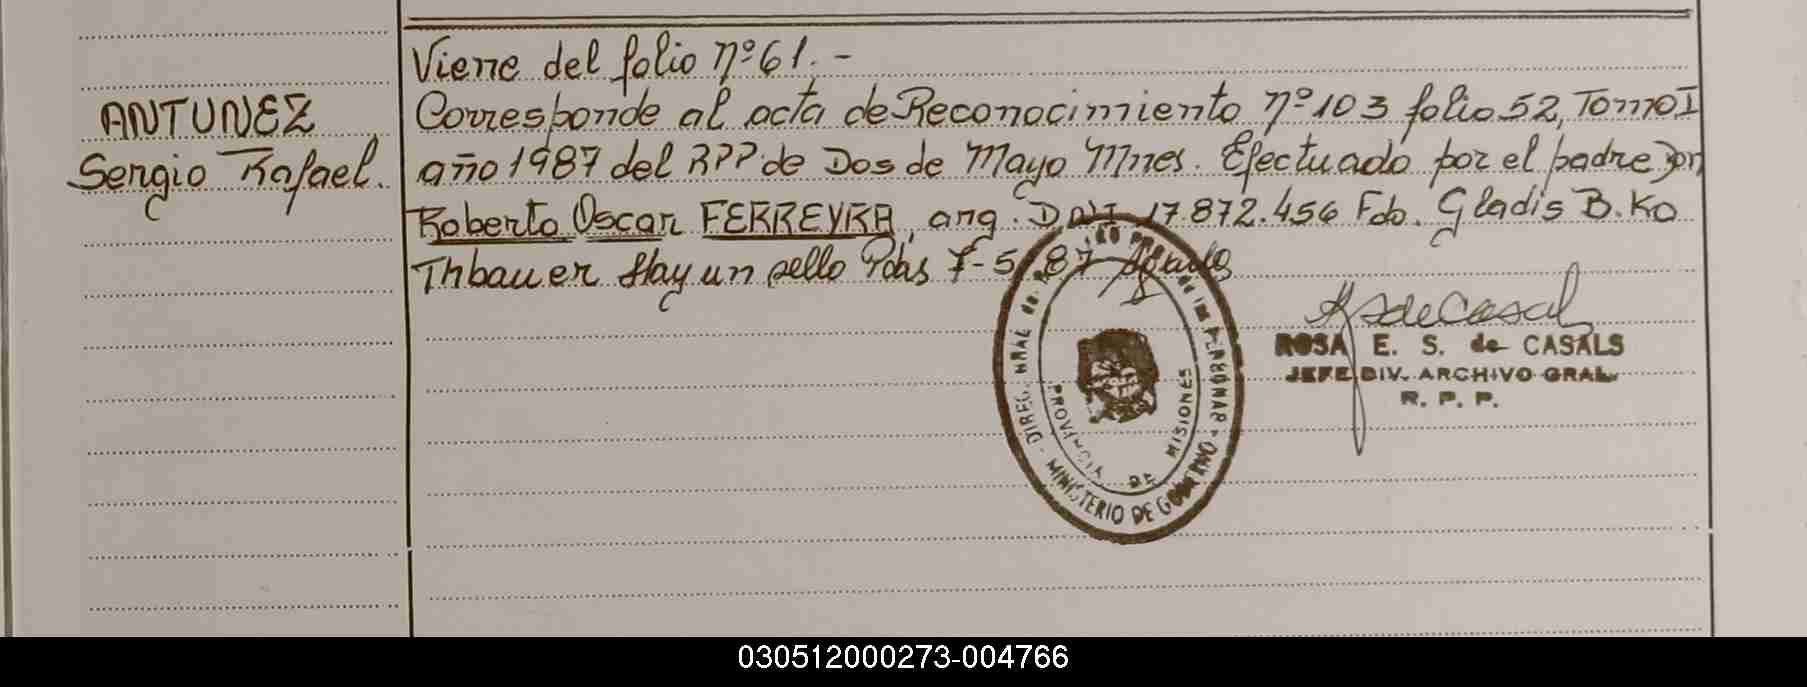 Viene del folio nº 61.-
ANTUNEZ
Sergio Rafael.
Corresponde al acta de Reconocimiento nº 103 folio 52, Tomo I
año 1987 del RPP de Dos de Mayo Mnes. Efectuado por el padre Don
Roberto Oscar FERREYRA, arg. D.N.I 17.872.456 Fdo. Gladis B. Ko
Thbauer Hay un sello Pdas 7-5-87
ROSA E. S. de CASALS
JEFE DIV. ARCHIVO GRAL.
R. P. P.
DIREC. GRAL de
MINISTERIO DE GOBIERNO
PROVINCIA DE MISIONES
030512000273-004766